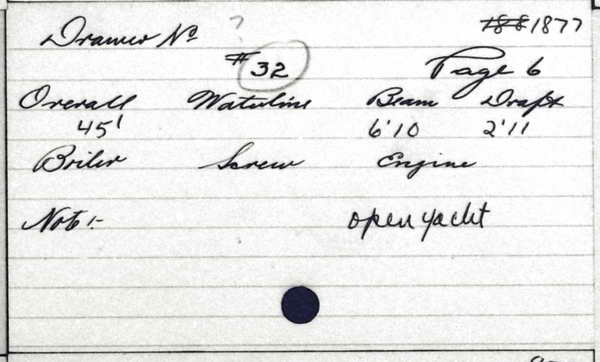 Drawer No ? 1877
#32 Page 6
Overall Waterline Beam Draft
45' 6'10 2'11
Boiler Screw Engine
Note:- open yacht